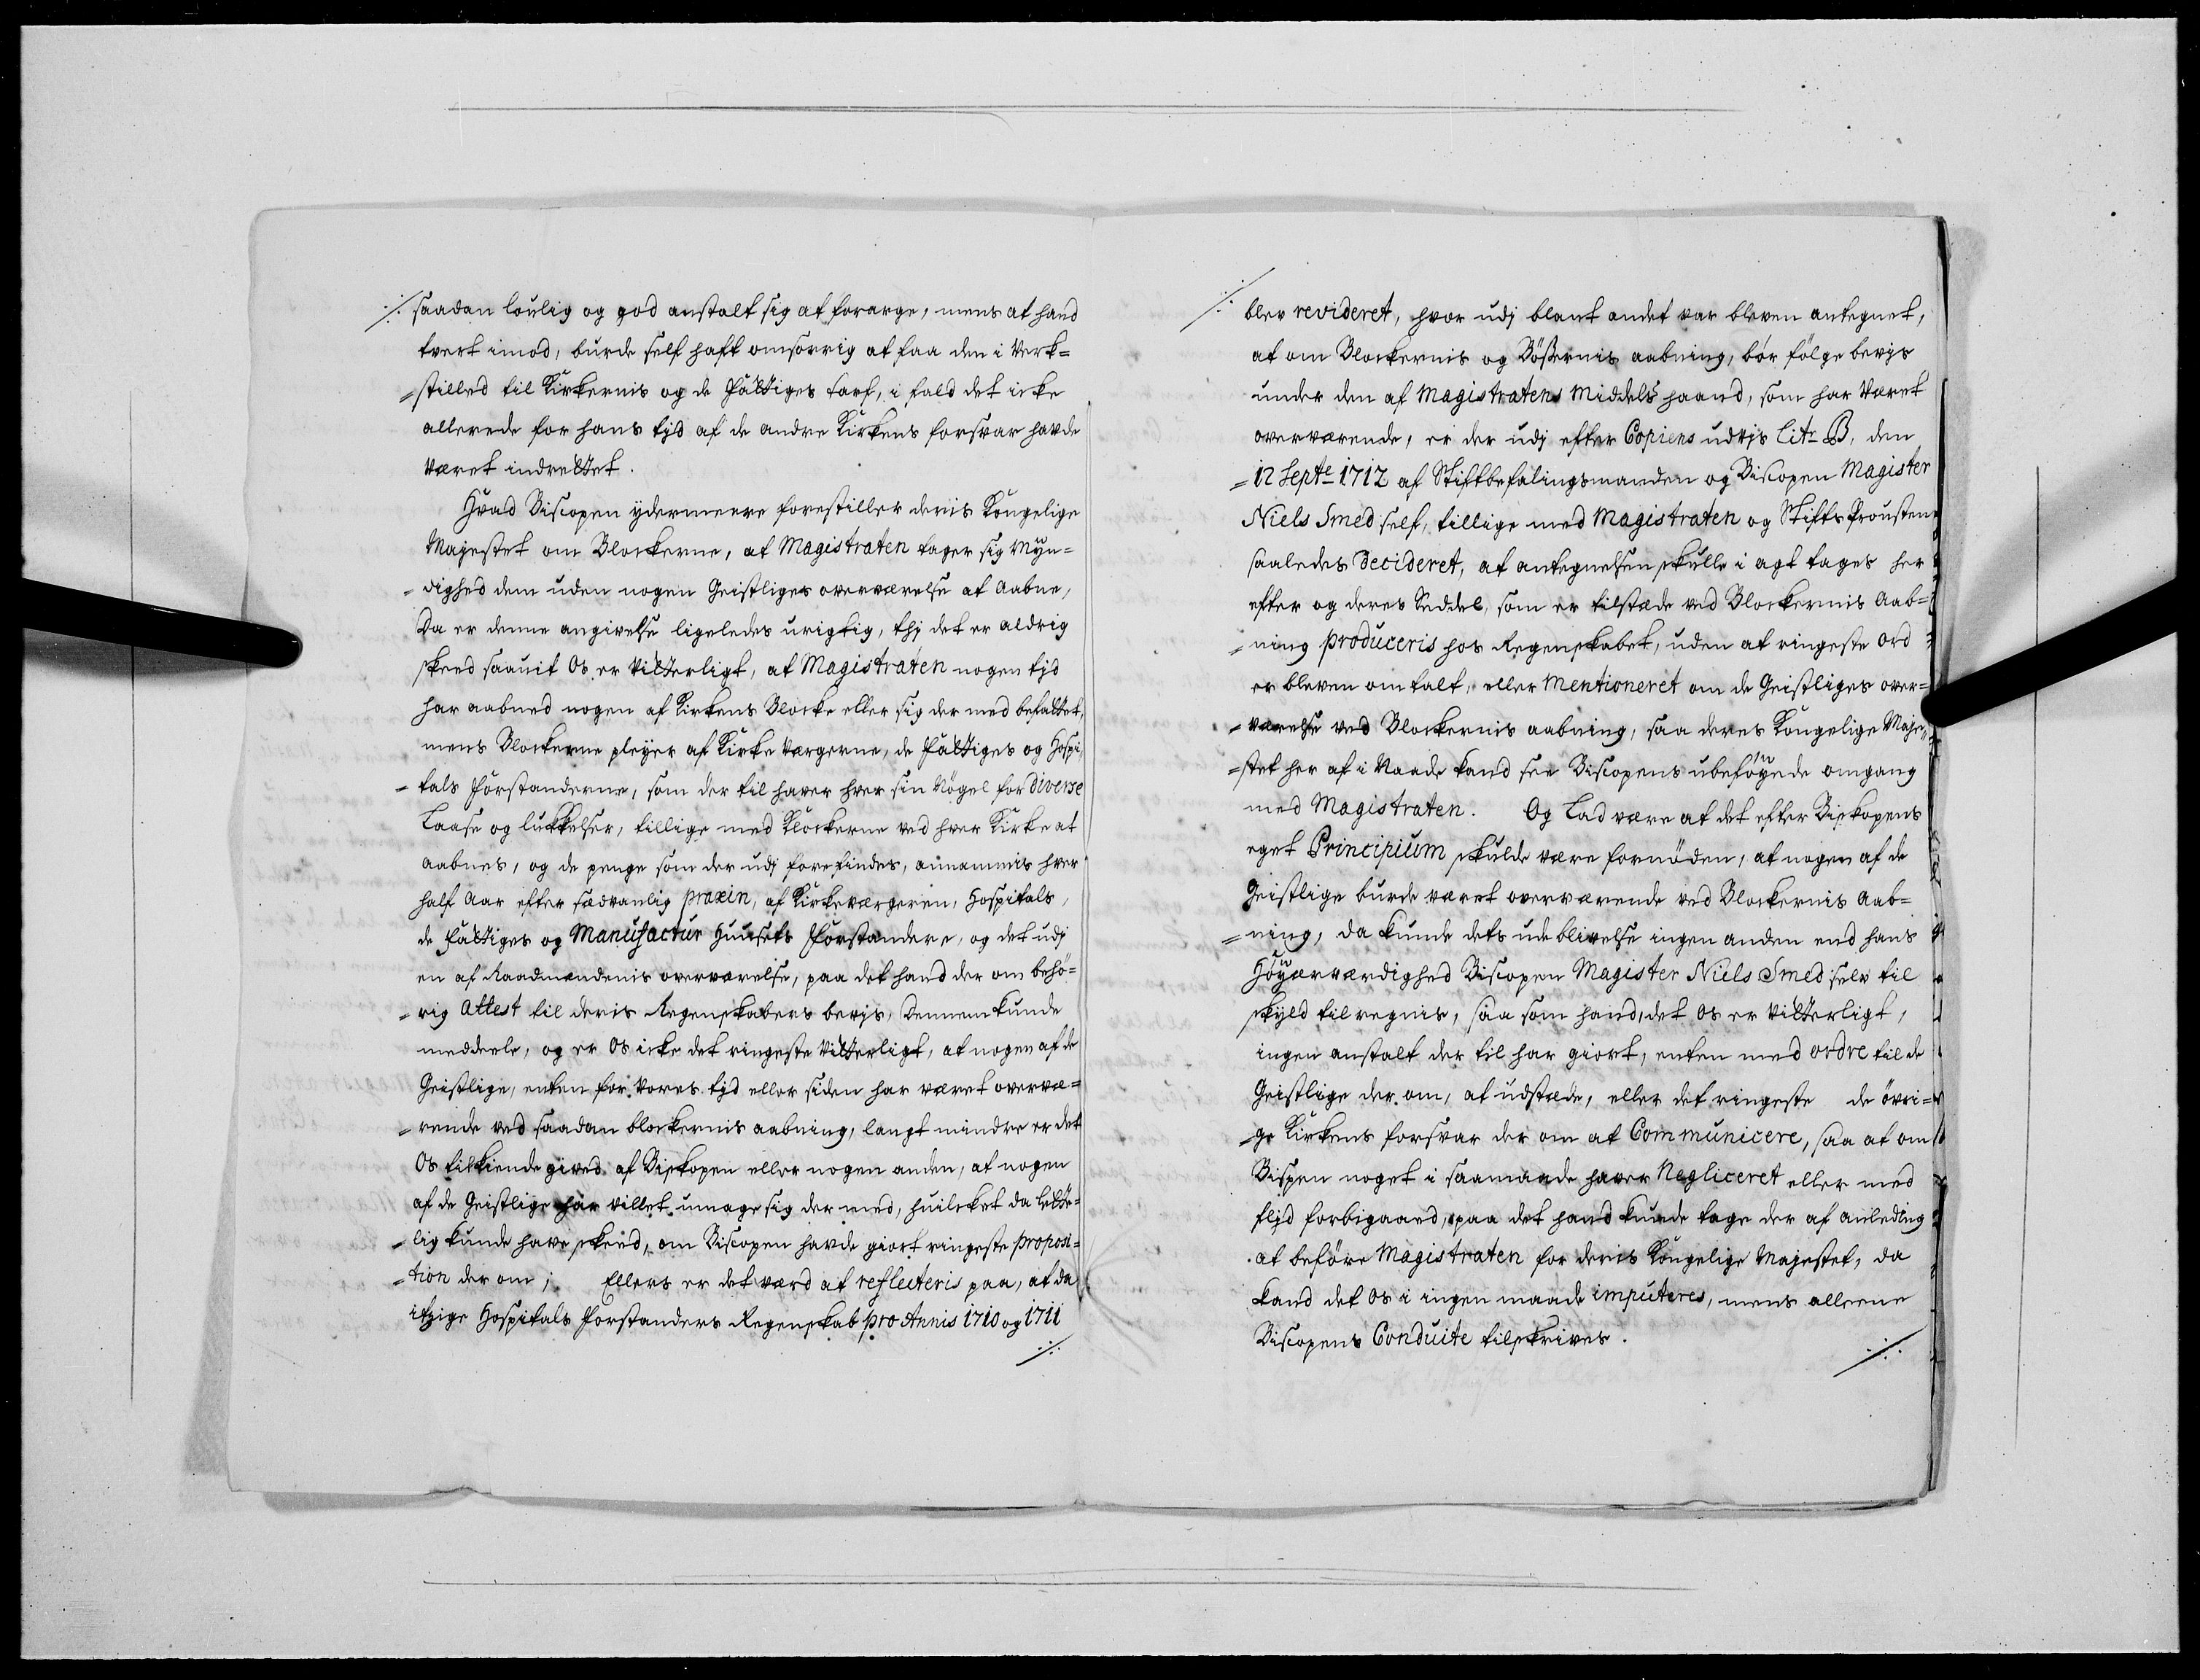 ./. saadan lovlig og god anstalt sig at forarge, mens at hand
tvert imod, burde self haft omsorrig at faa den i Verk=
=stilled til Kirkernis og de fattiges tarf, i fald det icke
allerede for hans tjd af de andre Kirkens forsvar havde
Været indrettet.
Hvad Biscopen ydermeere forestiller deris Kongelige
Majestet om Blockerne, at Magistraten tager sig Myn=
=dighed dem uden nogen Geistliges overværelse at Aabne,
Da er denne angivelse ligeledes urigtig, thj det er aldrig
skeed saavit Os er Vitterligt, at Magistraten nogen tjd
har aabned nogen af Kirkens Blocke eller sig der med befattet,
mens Blockerne pleyer af Kirke Værgerne, de fattiges og Hospi,
=tals Forstanderne, som der til haver hver sin Nögel for diverse
Laase og lukkelser, tillige med Klockerne ved hver Kirke at
aabnes, og de penge som der udj forefindes, annammis hver
half Aar efter sædvanlig praxin, af Kirkeværgeren, Hospitals,
de fattiges og Manufactur Huusets Forstandere, og det udj
en af Raadmændenis overværelse, paa det hand der om behö=
=rig Attest til deris Regenskabers bevjs, Dennem kunde
meddeele, og er Os icke det ringeste Vitterligt, at nogen af de
Geistlige, enten for Vores tjd eller siden har været overvæ=
=rende ved saadan blockernis aabning, langt mindre er det
Os tilkiende gived af Biskopen eller nogen anden, at nogen
af de Geistlige har villet umage sig der med, huilcket da lætte=
=lig kunde have skeed, om Biscopen havde giort ringeste proposi=
=tion der om; Ellers er det værd at reflecteris paa, at da
itzige Hospitals Forstanders Regenskab pro Annis 1710 og 1711
./.
./. blev revideret, hvor udj blant andet var bleven antegnet,
at om Blockernis og Bößernis aabning, bör fölge bevjs
under den af Magistratens Middels haand, som har Været
overværende, er der udj efter Copiens udvjs Lit: B, den
=12 Septe 1712 af Stiftbefalingsmanden og Biscopen Magister
Niels Smed self, tillige med Magistraten og Stifts Prousten
saaledes Decideret, at antegnelsen skulle i agt tages her
efter og deres Seddel, som er tilstæde ved Blockernis Aab=
=ning produceris hos Regenskabet, uden at ringeste Ord
er bleven omtalt, eller Mentioneret om de Geistliges over=
=værelse ved Blockernis aabning, saa deres Kongelige Maje,,
=stet her af i Naade kand see Biscopens ubeföyede omgang
med Magistraten. Og Lad være at det efter Biskopens
eget Principium skulde være fornöden, at nogen af de
Geistlige burde været overværende ved Blockernis Aab=
=ning, da kunde dets udeblivelse ingen anden end hans
Höyærværdighed Biscopen Magister Niels Smed selv til
skyld tilregnis, saa som hand, det Os er Vitterligt,
ingen anstalt der til har giort, enten med ordre til de
Geistlige der om, at udstæde, eller det ringeste de övri=
=ge Kirkens forsvar der om at Communicere, saa at om
Bispen noget i saamaade haver Negliceret eller med
fljd forbigaaed, paa det hand kunde tage der af anledlng
at beföre Magistraten for deris Kongelige Majestet, da
kand det Os i ingen maade imputeres, mens alleene
Biscopens Conduite tilskrives.
./.